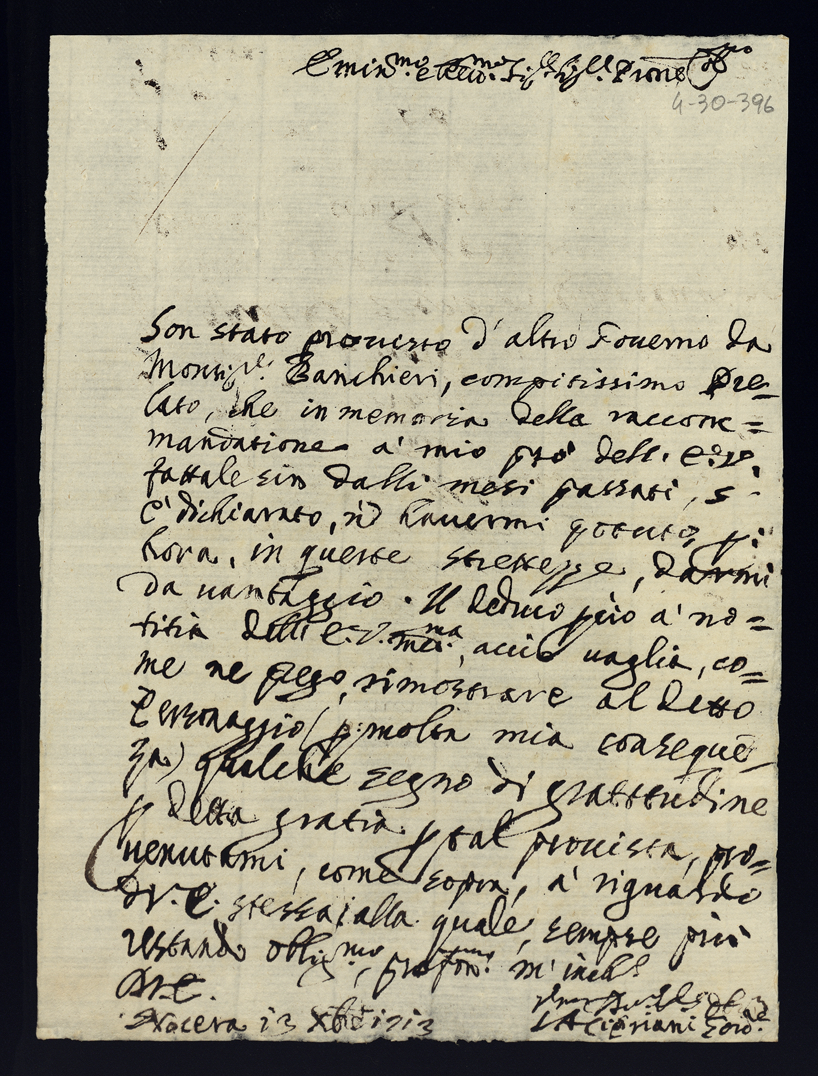 Emin.mo e Rev.mo Sig.re Sig.re Pron.e Col.mo
4-30-396
Son stato proueduto d'altro Gouerno da
Monsig.re Banchieri, compitissimo Pre=
lato, che in memoria della raccom=
mandatione a' mio prò dell' E. V.
fattale sin dalli mesi passati, s'
è dichiarato, nõ hauermi potuto, p
hora, in queste strettezze, darmi
da uantaggio. Il deduco però a' no=
titia dell' E. V. med.ma, acciò uaglia, co=
me ne prego, rimostrare al detto
Personaggio (p molta mia conseque-
za) qualche segno di gratitudine
p detta gratia p tal prouista, pro=
uenutami, come sopra, a' riguardo
di V. E. stessa; alla quale, sempre più
restando oblig.mo, profon.te m' inch.o
Di V. E.
Nocera 13 Xbre 1713
Cipriani